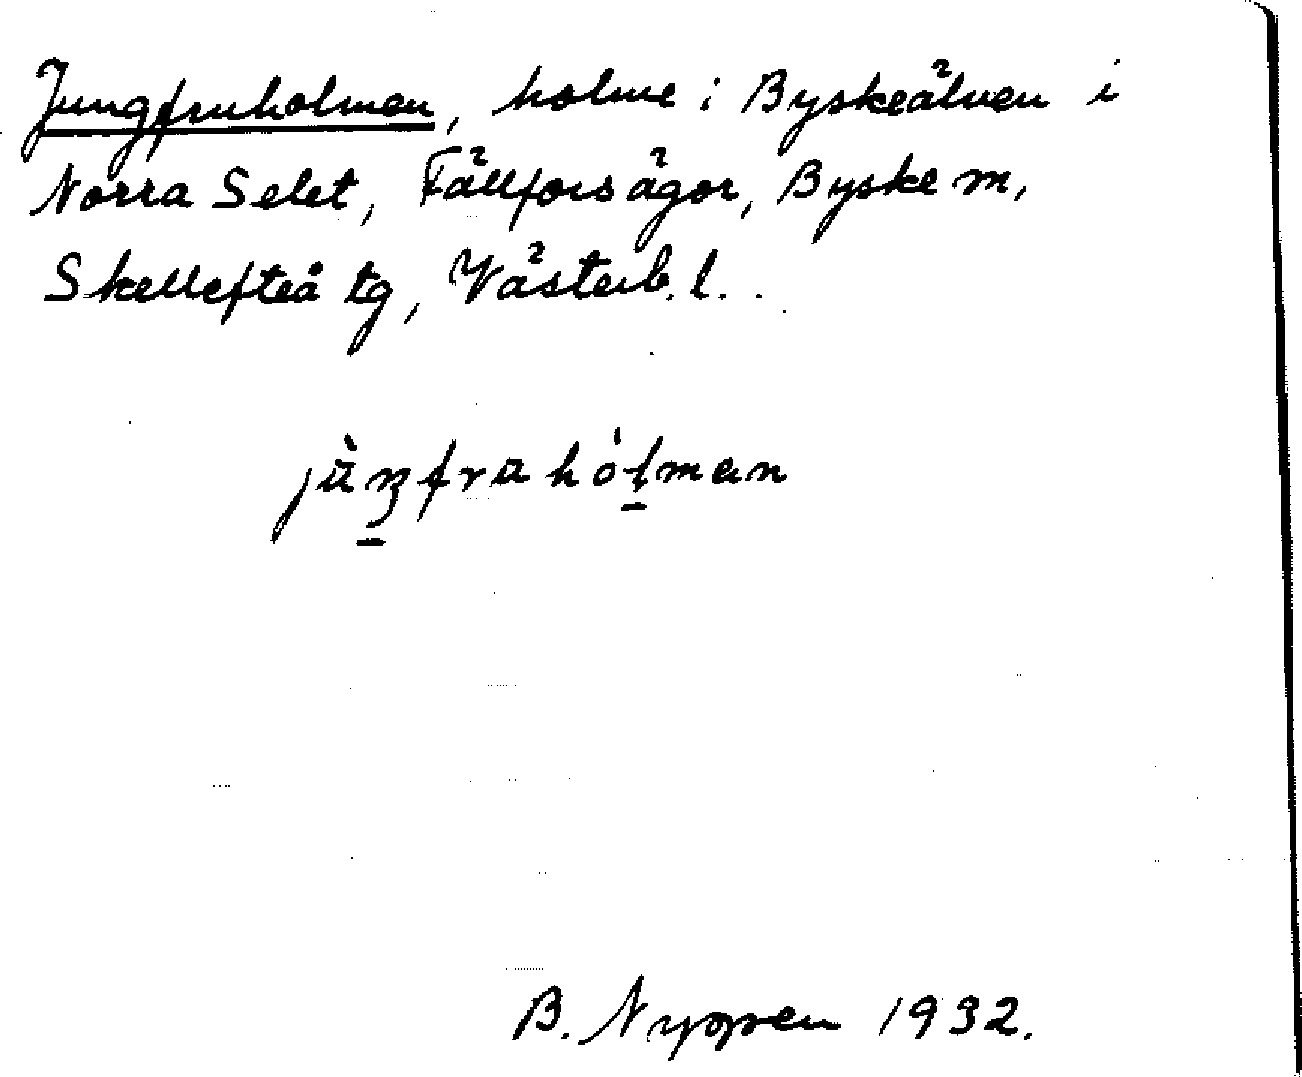 Jungfruholmen, holme i Byskeälven i
Norra Selet, Fällfors ägor, Byske m,
Skellefteå tg, Västerb. l.
jùŋfru hólman
B. Nygren 1932.